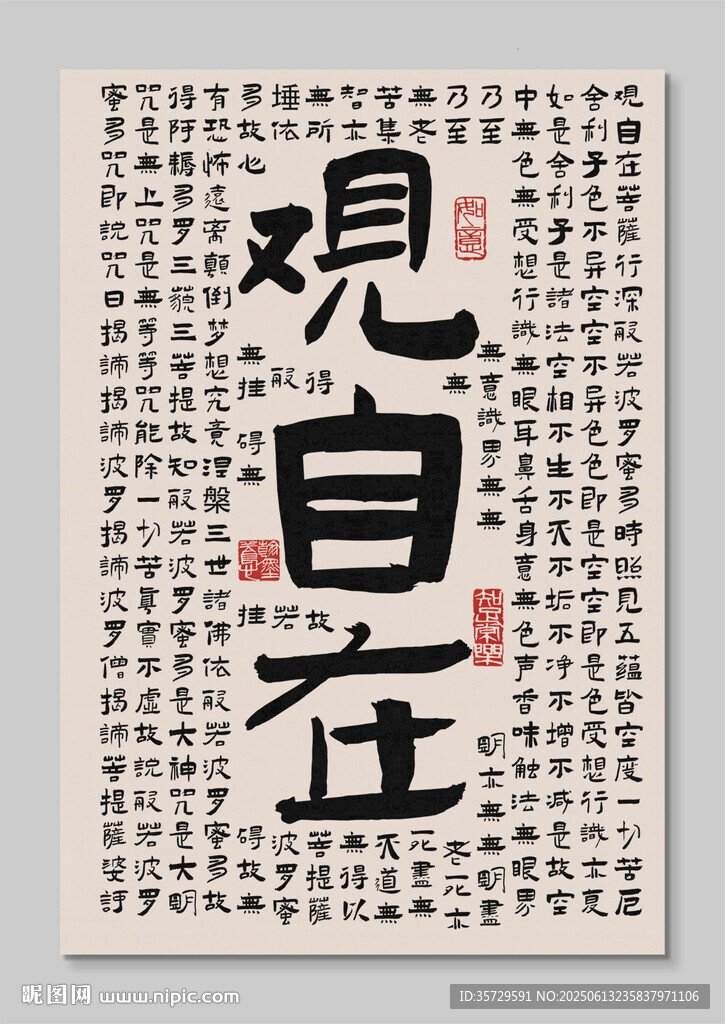 观自在
观自在菩薩行深般若波罗蜜多時照見五蕴皆空度一切苦厄
舍利子色不异空空不异色色即是空空即是色受想行識亦复
如是舍利子是諸法空相不生不灭不垢不净不增不减是故空
中無色無受想行識無眼耳鼻舌身意無色声香味触法無眼界
乃至無意識界無無明亦無無明盡
乃至無老死亦
無老死盡無
苦集灭道無
智亦無得以
無所得故菩提薩
埵依般若波罗蜜
多故心無挂碍無挂碍故無
有恐怖遠离顛倒梦想究竟涅槃三世諸佛依般若波罗蜜多故
得阿耨多罗三藐三菩提故知般若波罗蜜多是大神咒是大明
咒是無上咒是無等等咒能除一切苦真實不虚故說般若波罗
蜜多咒即說咒曰揭諦揭諦波罗揭諦波罗僧揭諦菩提薩婆訶
如意
知足常樂
翰墨
昵图网 www.nipic.com
ID:35729591 NO:20250613235837971106